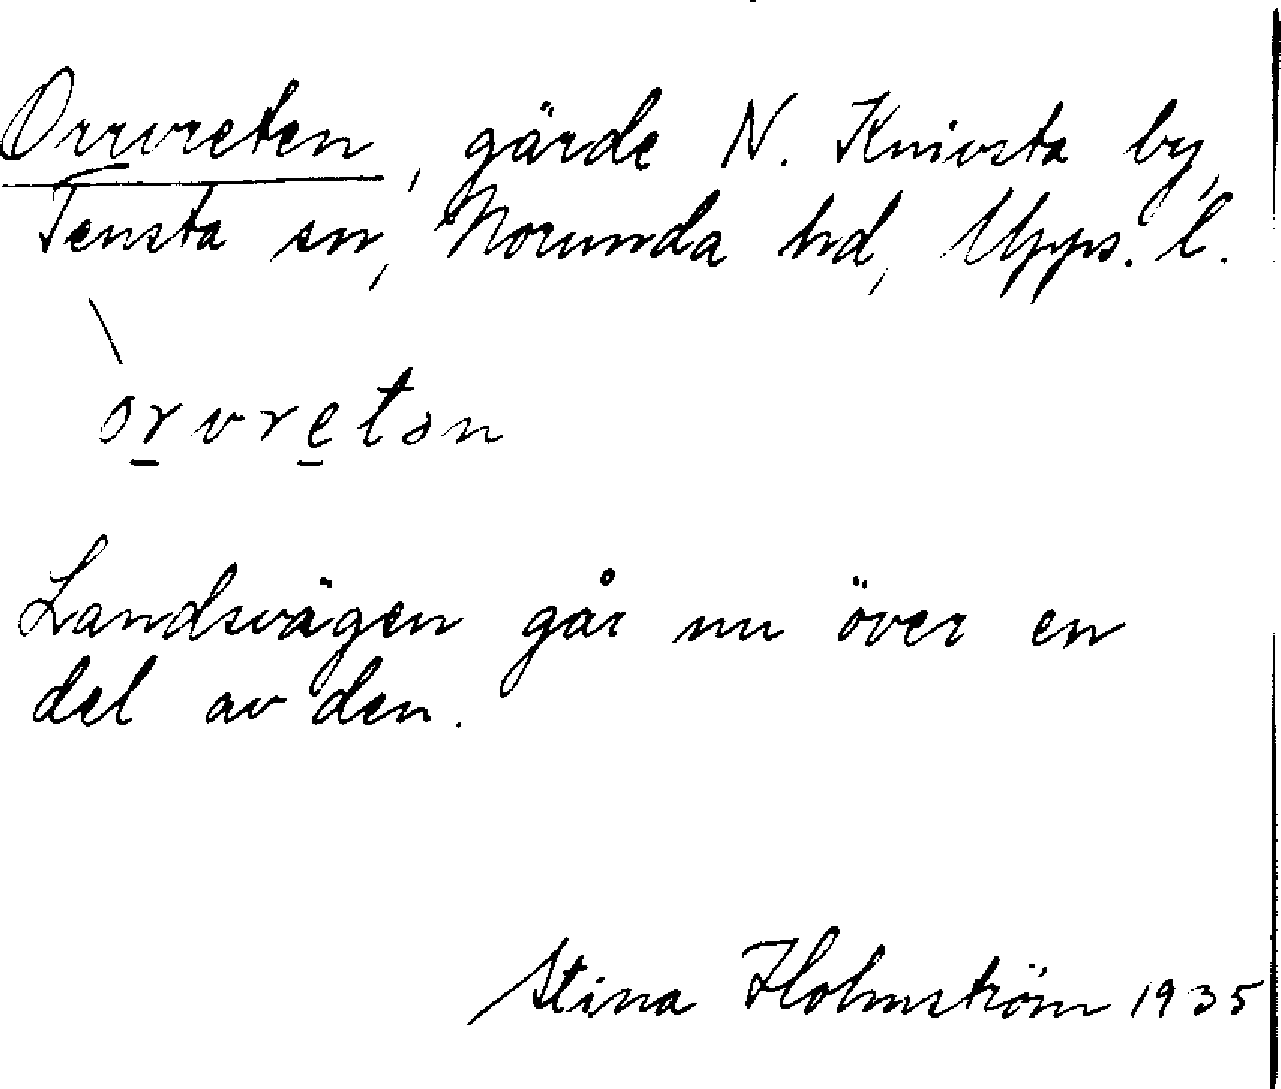 Orrvreten, gärde N. Knivsta by,
Tensta sn, Norunda hd, Upps. l.
orvretən
Landsvägen går nu över en
del av den.
Stina Holmström 1935